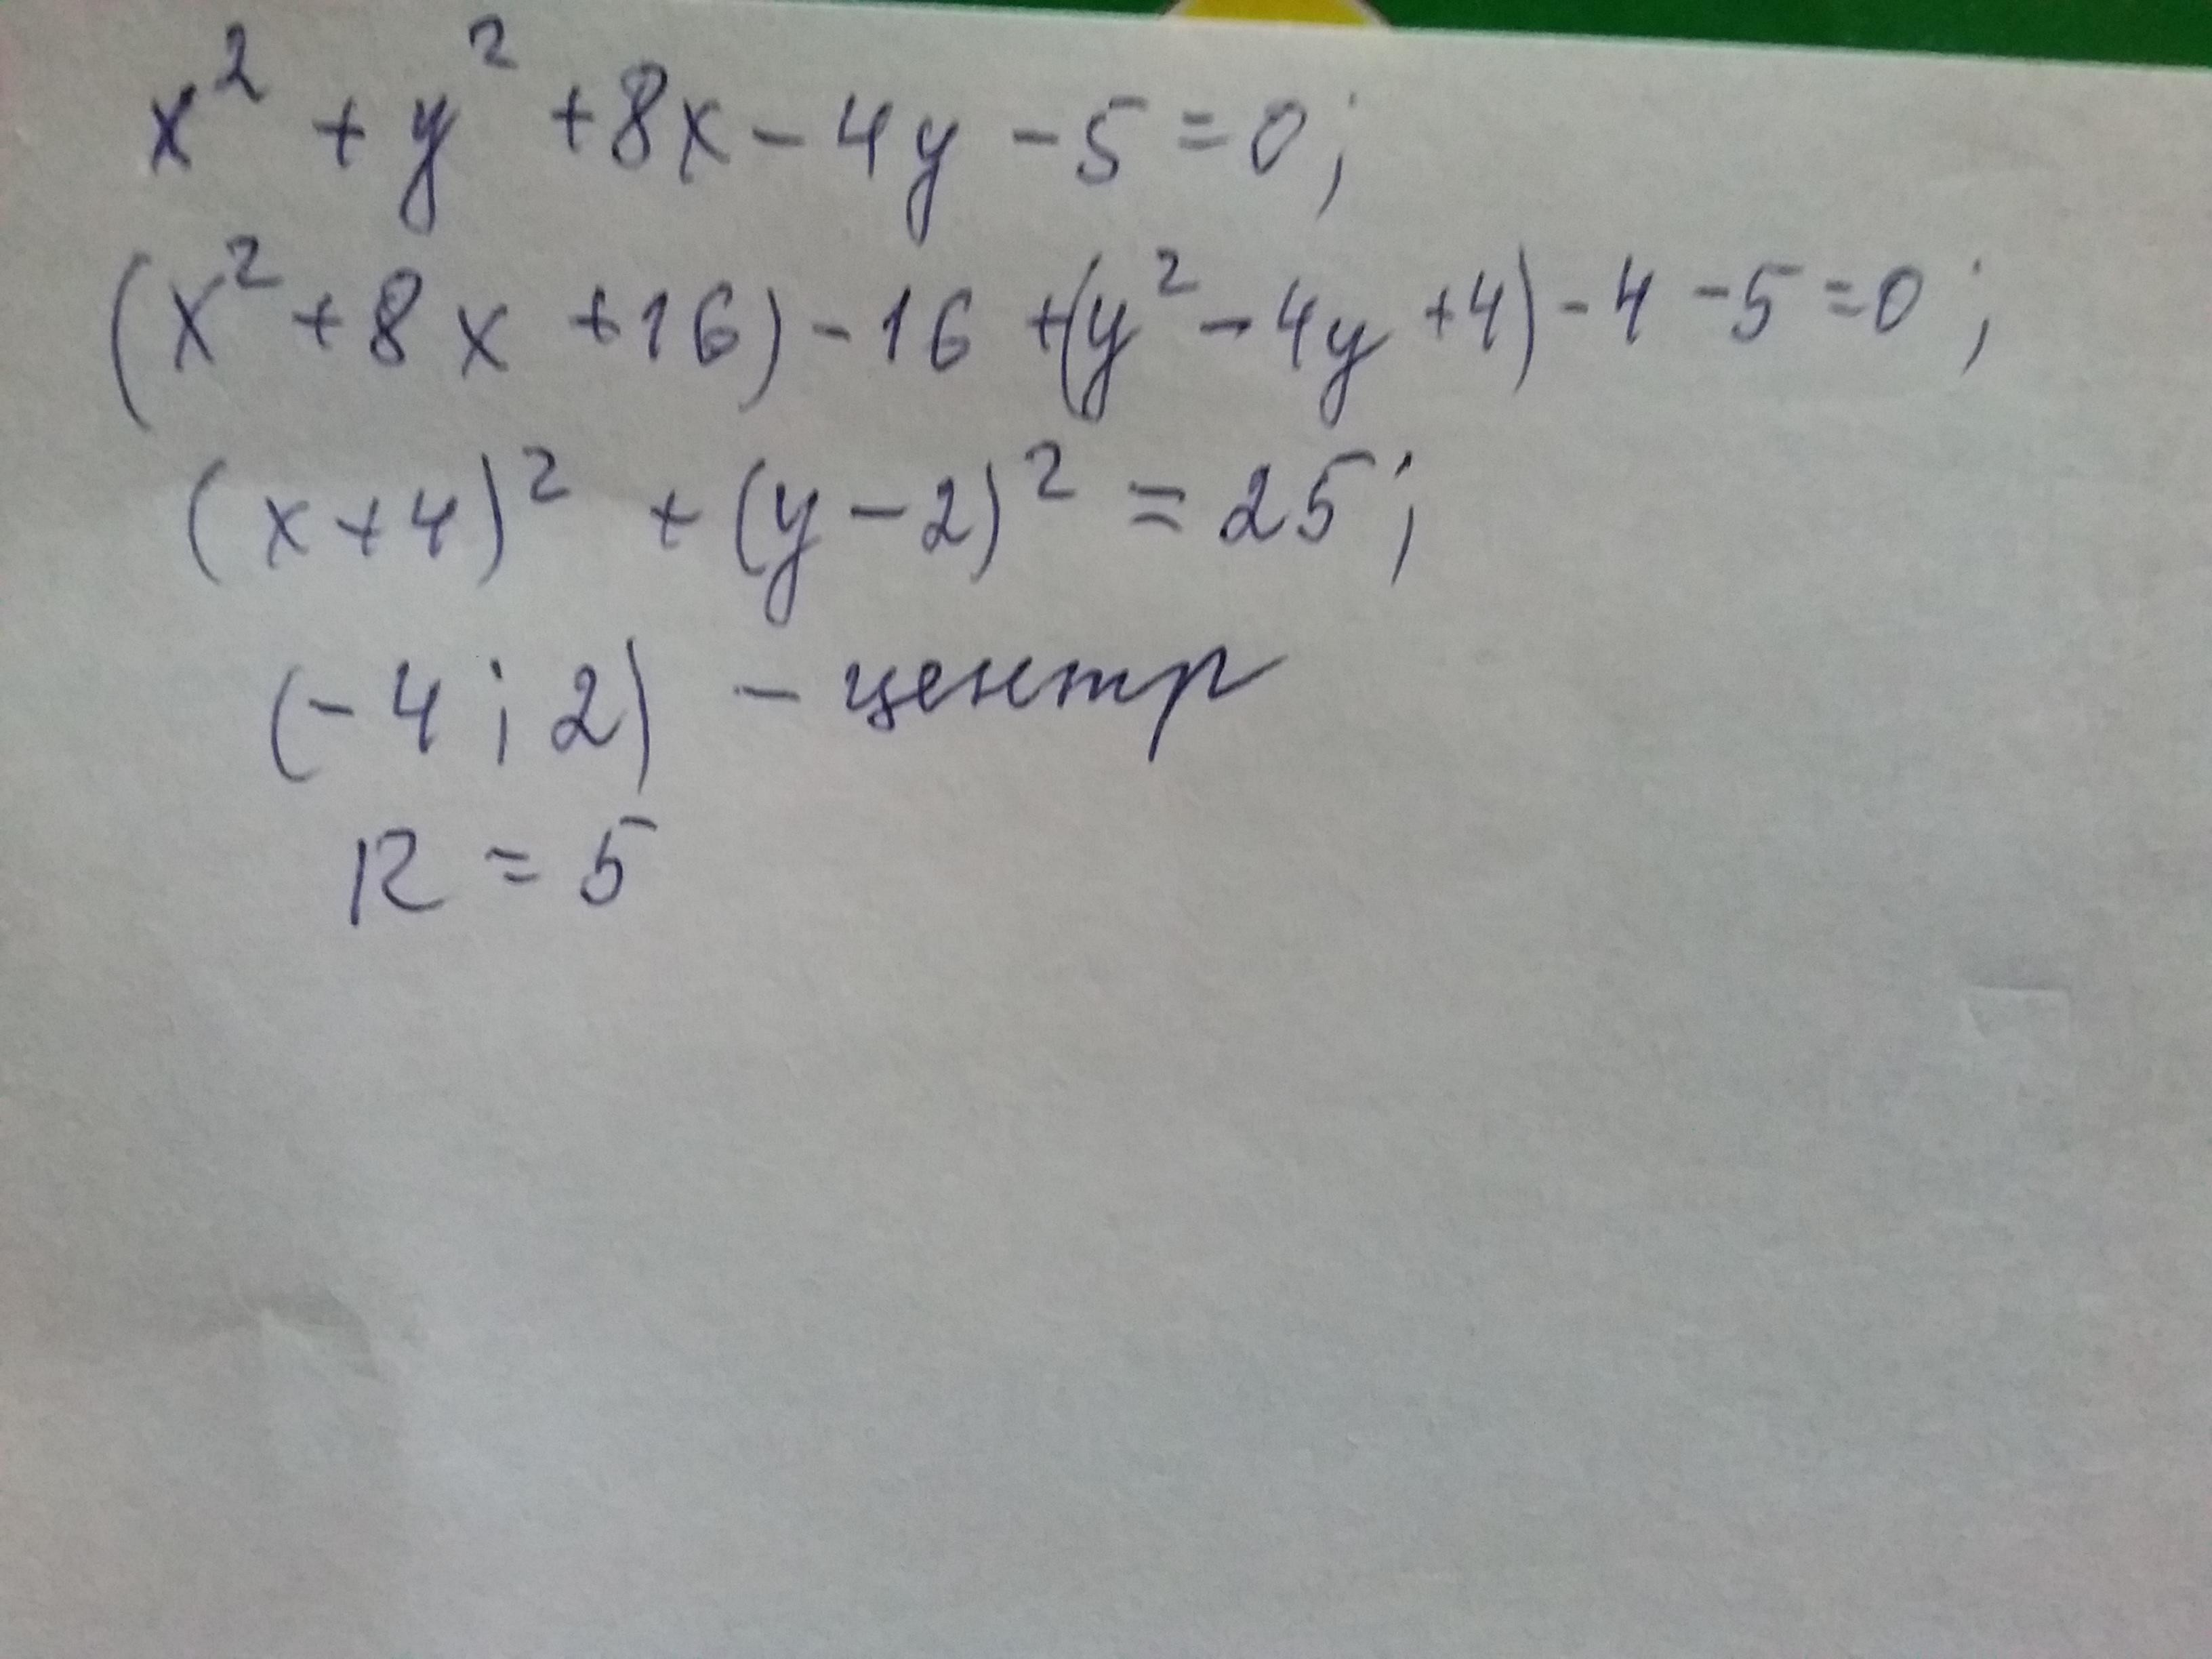 x² + y² + 8x - 4y - 5 = 0;
(x² + 8x + 16) - 16 + (y² - 4y + 4) - 4 - 5 = 0;
(x + 4)² + (y - 2)² = 25;
(-4; 2) - центр
R = 5